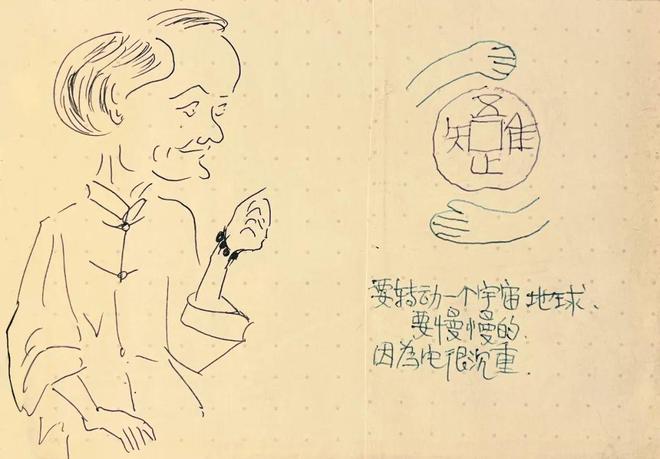 吾唯知足
要转动一个宇宙地球、
要慢慢的.
因為它很沉重.